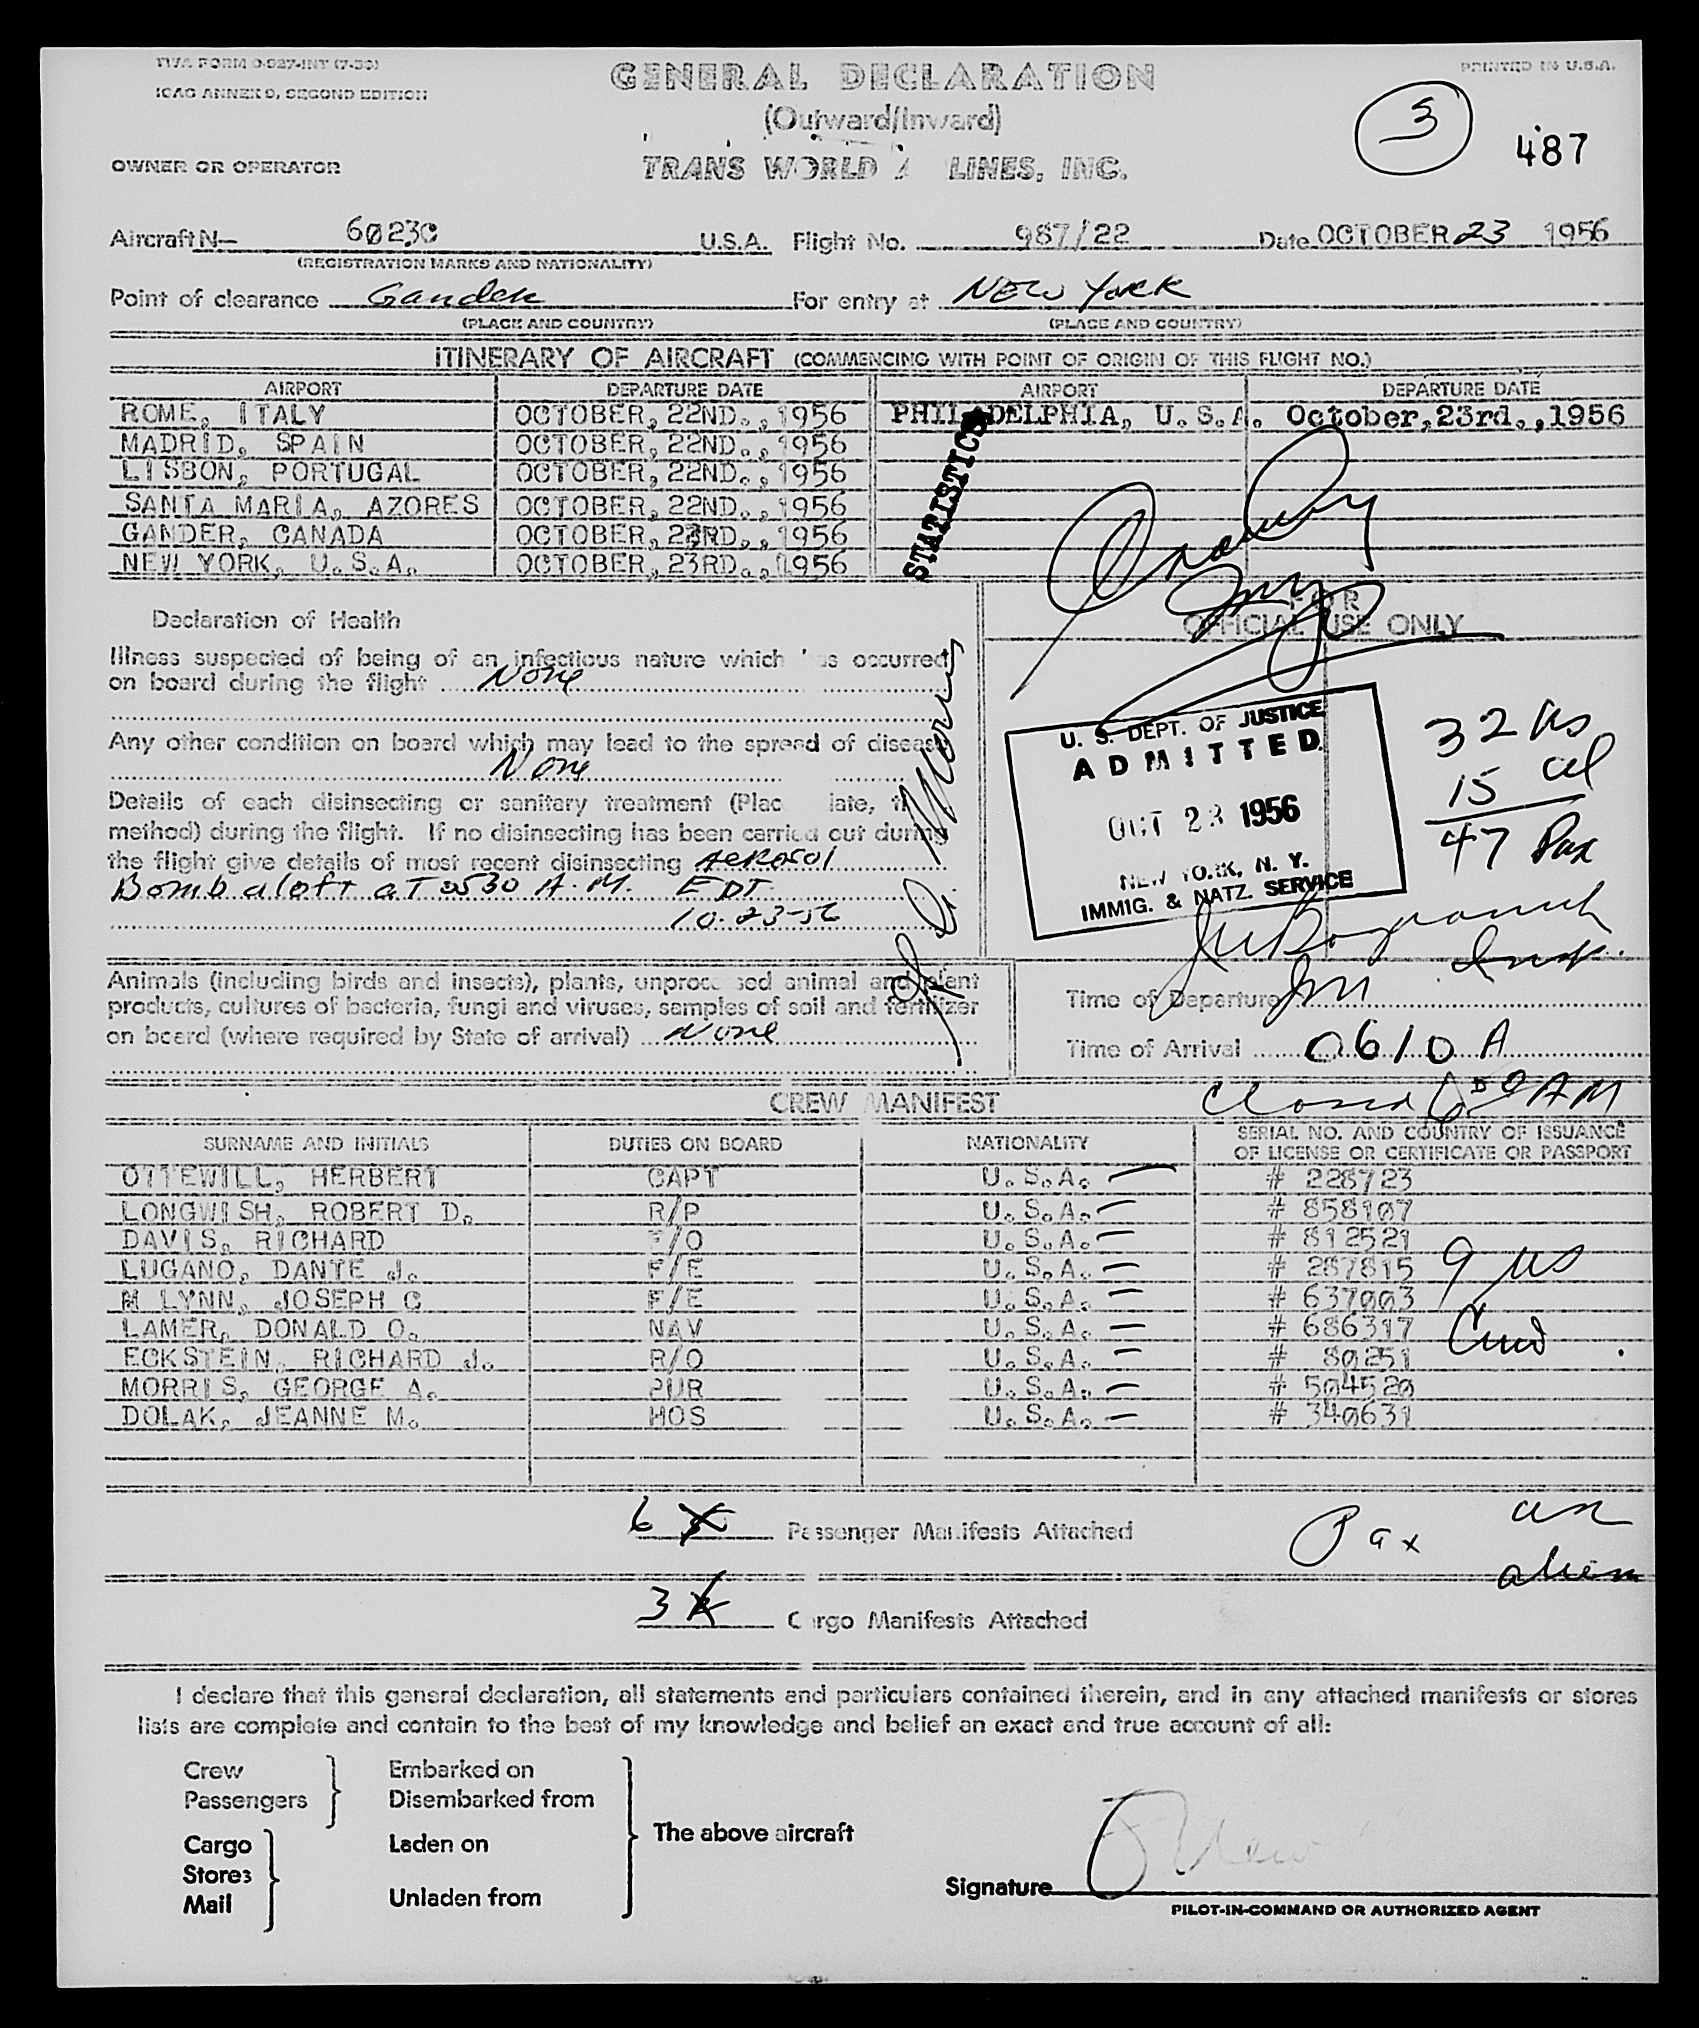 TWA FORM O-927-INT (7-56)
ICAO ANNEX 9, SECOND EDITION
GENERAL DECLARATION
(Outward/Inward)
PRINTED IN U.S.A.
3
487
OWNER OR OPERATOR
TRANS WORLD LINES, INC.
Aircraft N— 6023C U.S.A. Flight No. 987/22 Date OCTOBER 23 1956
(REGISTRATION MARKS AND NATIONALITY)
Point of clearance Gander For entry at NEW YORK
(PLACE AND COUNTRY) (PLACE AND COUNTRY)
ITINERARY OF AIRCRAFT (COMMENCING WITH POINT OF ORIGIN OF THIS FLIGHT NO.)
AIRPORT DEPARTURE DATE AIRPORT DEPARTURE DATE
ROME, ITALY OCTOBER, 22ND., 1956 PHILADELPHIA, U.S.A. October,23rd.,1956
MADRID, SPAIN OCTOBER, 22ND., 1956
LISBON, PORTUGAL OCTOBER, 22ND., 1956
SANTA MARIA, AZORES OCTOBER, 22ND., 1956
GANDER, CANADA OCTOBER, 23RD., 1956
NEW YORK, U.S.A. OCTOBER, 23RD., 1956
STATISTICS
Declaration of Health
FOR
OFFICIAL USE ONLY
Illness suspected of being of an infectious nature which has occurred
on board during the flight None
Any other condition on board which may lead to the spread of disease
None
Details of each disinsecting or sanitary treatment (Plac iate, ti
method) during the flight. If no disinsecting has been carried out during
the flight give details of most recent disinsecting Aerosol
Bomb aloft at 0530 A.M. EDT
10-23-56
U. S. DEPT. OF JUSTICE
ADMITTED
OCT 23 1956
NEW YORK, N. Y.
IMMIG. & NATZ. SERVICE
32 US
15 al
47 Pax
Animals (including birds and insects), plants, unprocessed animal and plant
products, cultures of bacteria, fungi and viruses, samples of soil and fertilizer
on board (where required by State of arrival) None
Time of Departure
Time of Arrival 0610 A
CREW MANIFEST
SURNAME AND INITIALS DUTIES ON BOARD NATIONALITY SERIAL NO. AND COUNTRY OF ISSUANCE
OF LICENSE OR CERTIFICATE OR PASSPORT
OTTEWILL, HERBERT CAPT U.S.A. # 228723
LONGWISH, ROBERT D. R/P U.S.A. # 858107
DAVIS, RICHARD F/O U.S.A. # 812521
LUGANO, DANTE J. F/E U.S.A. # 287815
M LYNN, JOSEPH C F/E U.S.A. # 637003
LAMER, DONALD O. NAV U.S.A. # 686317
ECKSTEIN, RICHARD J. R/O U.S.A. # 80251
MORRIS, GEORGE A. PUR U.S.A. # 504520
DOLAK, JEANNE M. HOS U.S.A. # 340631
9 US
Crew
6 Passenger Manifests Attached
Pax
alien
3 Cargo Manifests Attached
I declare that this general declaration, all statements and particulars contained therein, and in any attached manifests or stores
lists are complete and contain to the best of my knowledge and belief an exact and true account of all:
Crew Embarked on
Passengers Disembarked from
Cargo Laden on The above aircraft
Stores
Mail Unladen from
Signature
PILOT-IN-COMMAND OR AUTHORIZED AGENT